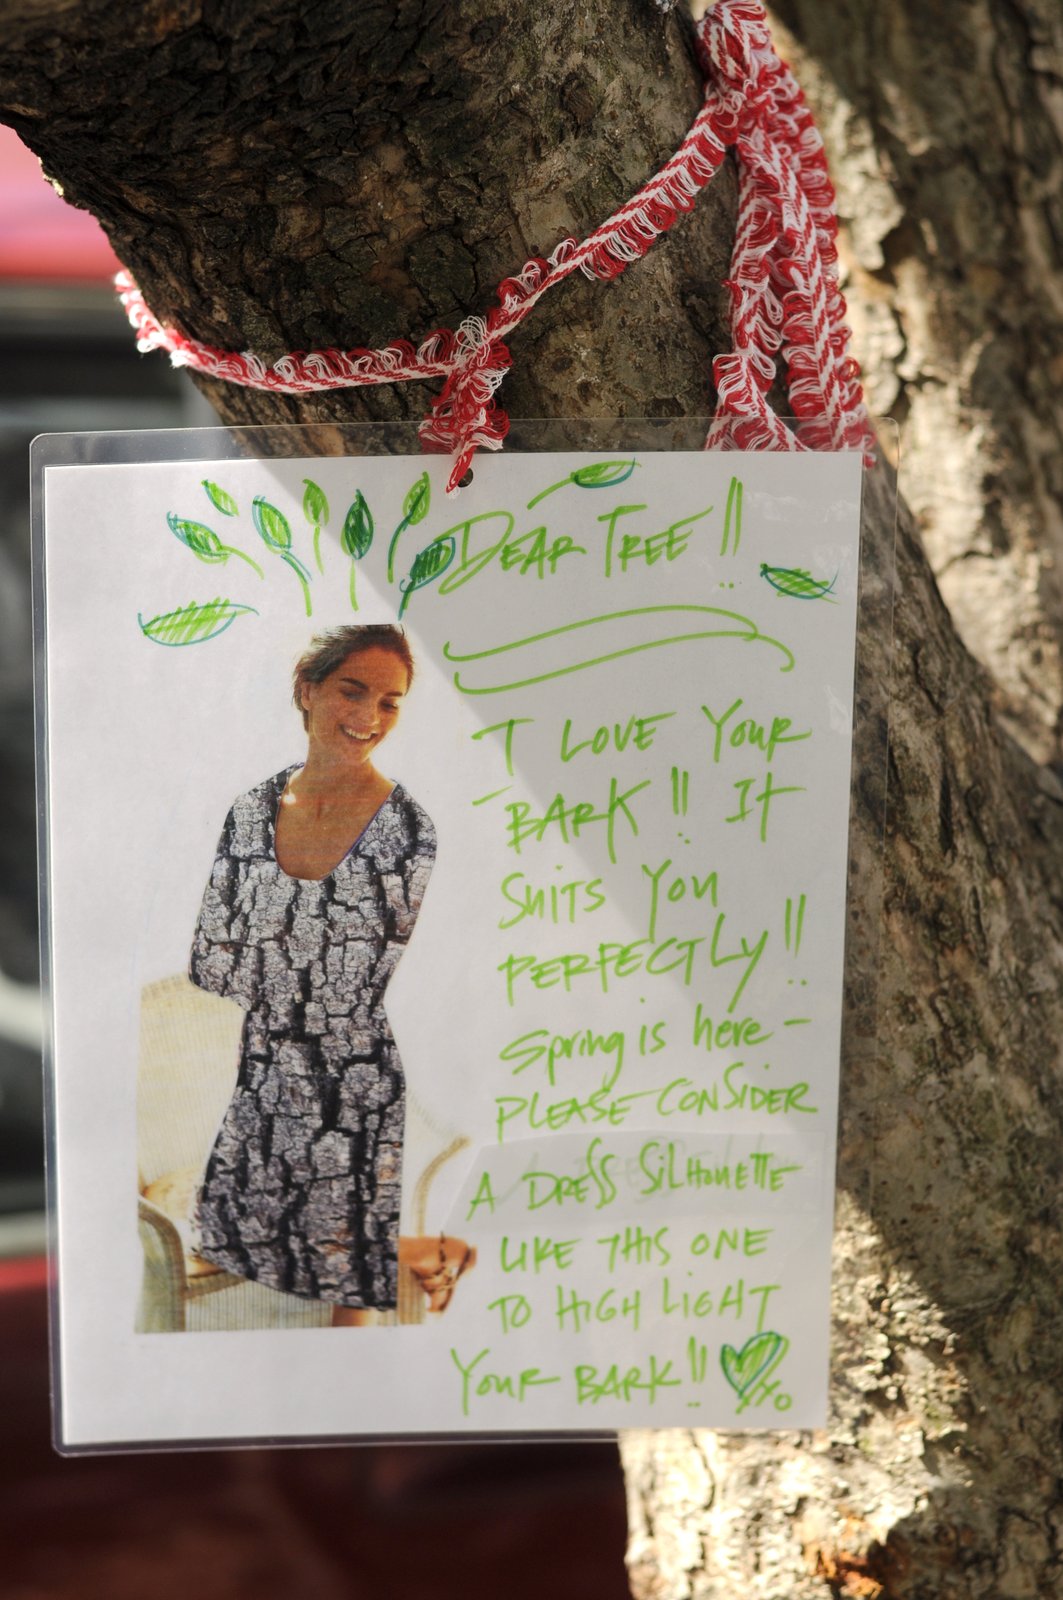 DEAR TREE!!
I LOVE YOUR
BARK!! It
SUITS YOU
PERFECTLY!!
Spring is here -
PLEASE CONSIDER
A DRESS SILHOUETTE
LIKE THIS ONE
TO HIGH LIGHT
YOUR BARK!!
xxo